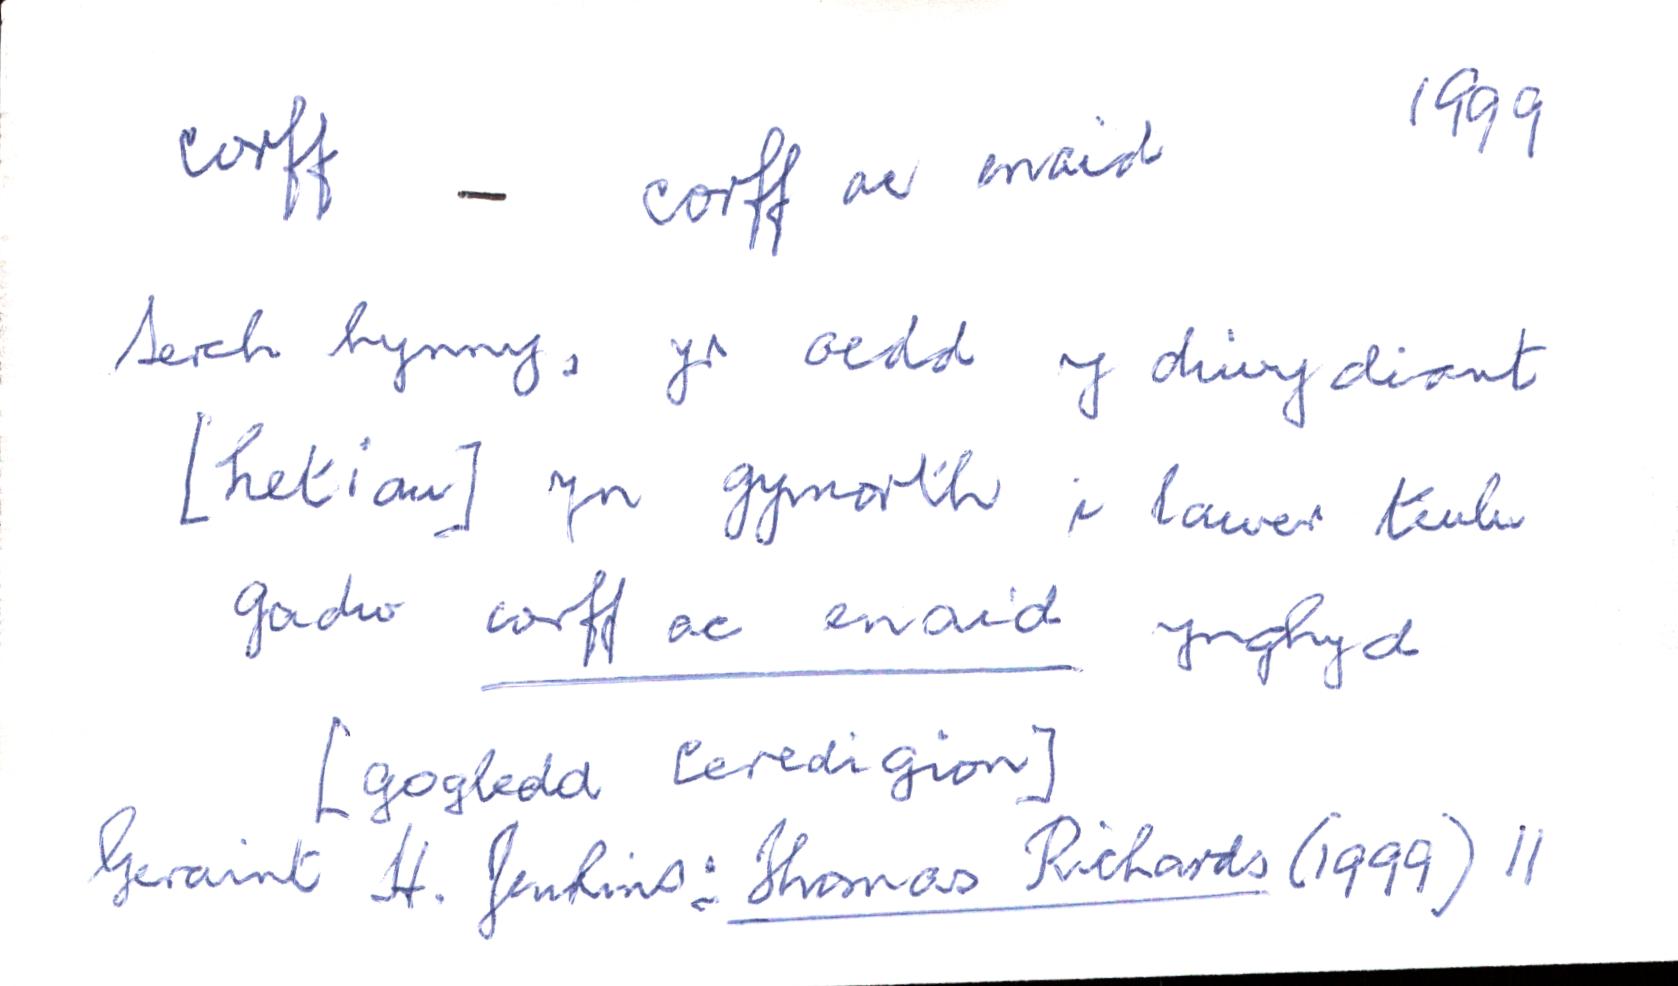 corff - corff ac enaid 1999
Serch hynny, yr oedd y diwydiant
[hetiau] yn gymorth i lawer teulu
gadw corff ac enaid ynghyd
[gogledd Ceredigion]
Geraint H. Jenkins: Thomas Richards (1999) 11